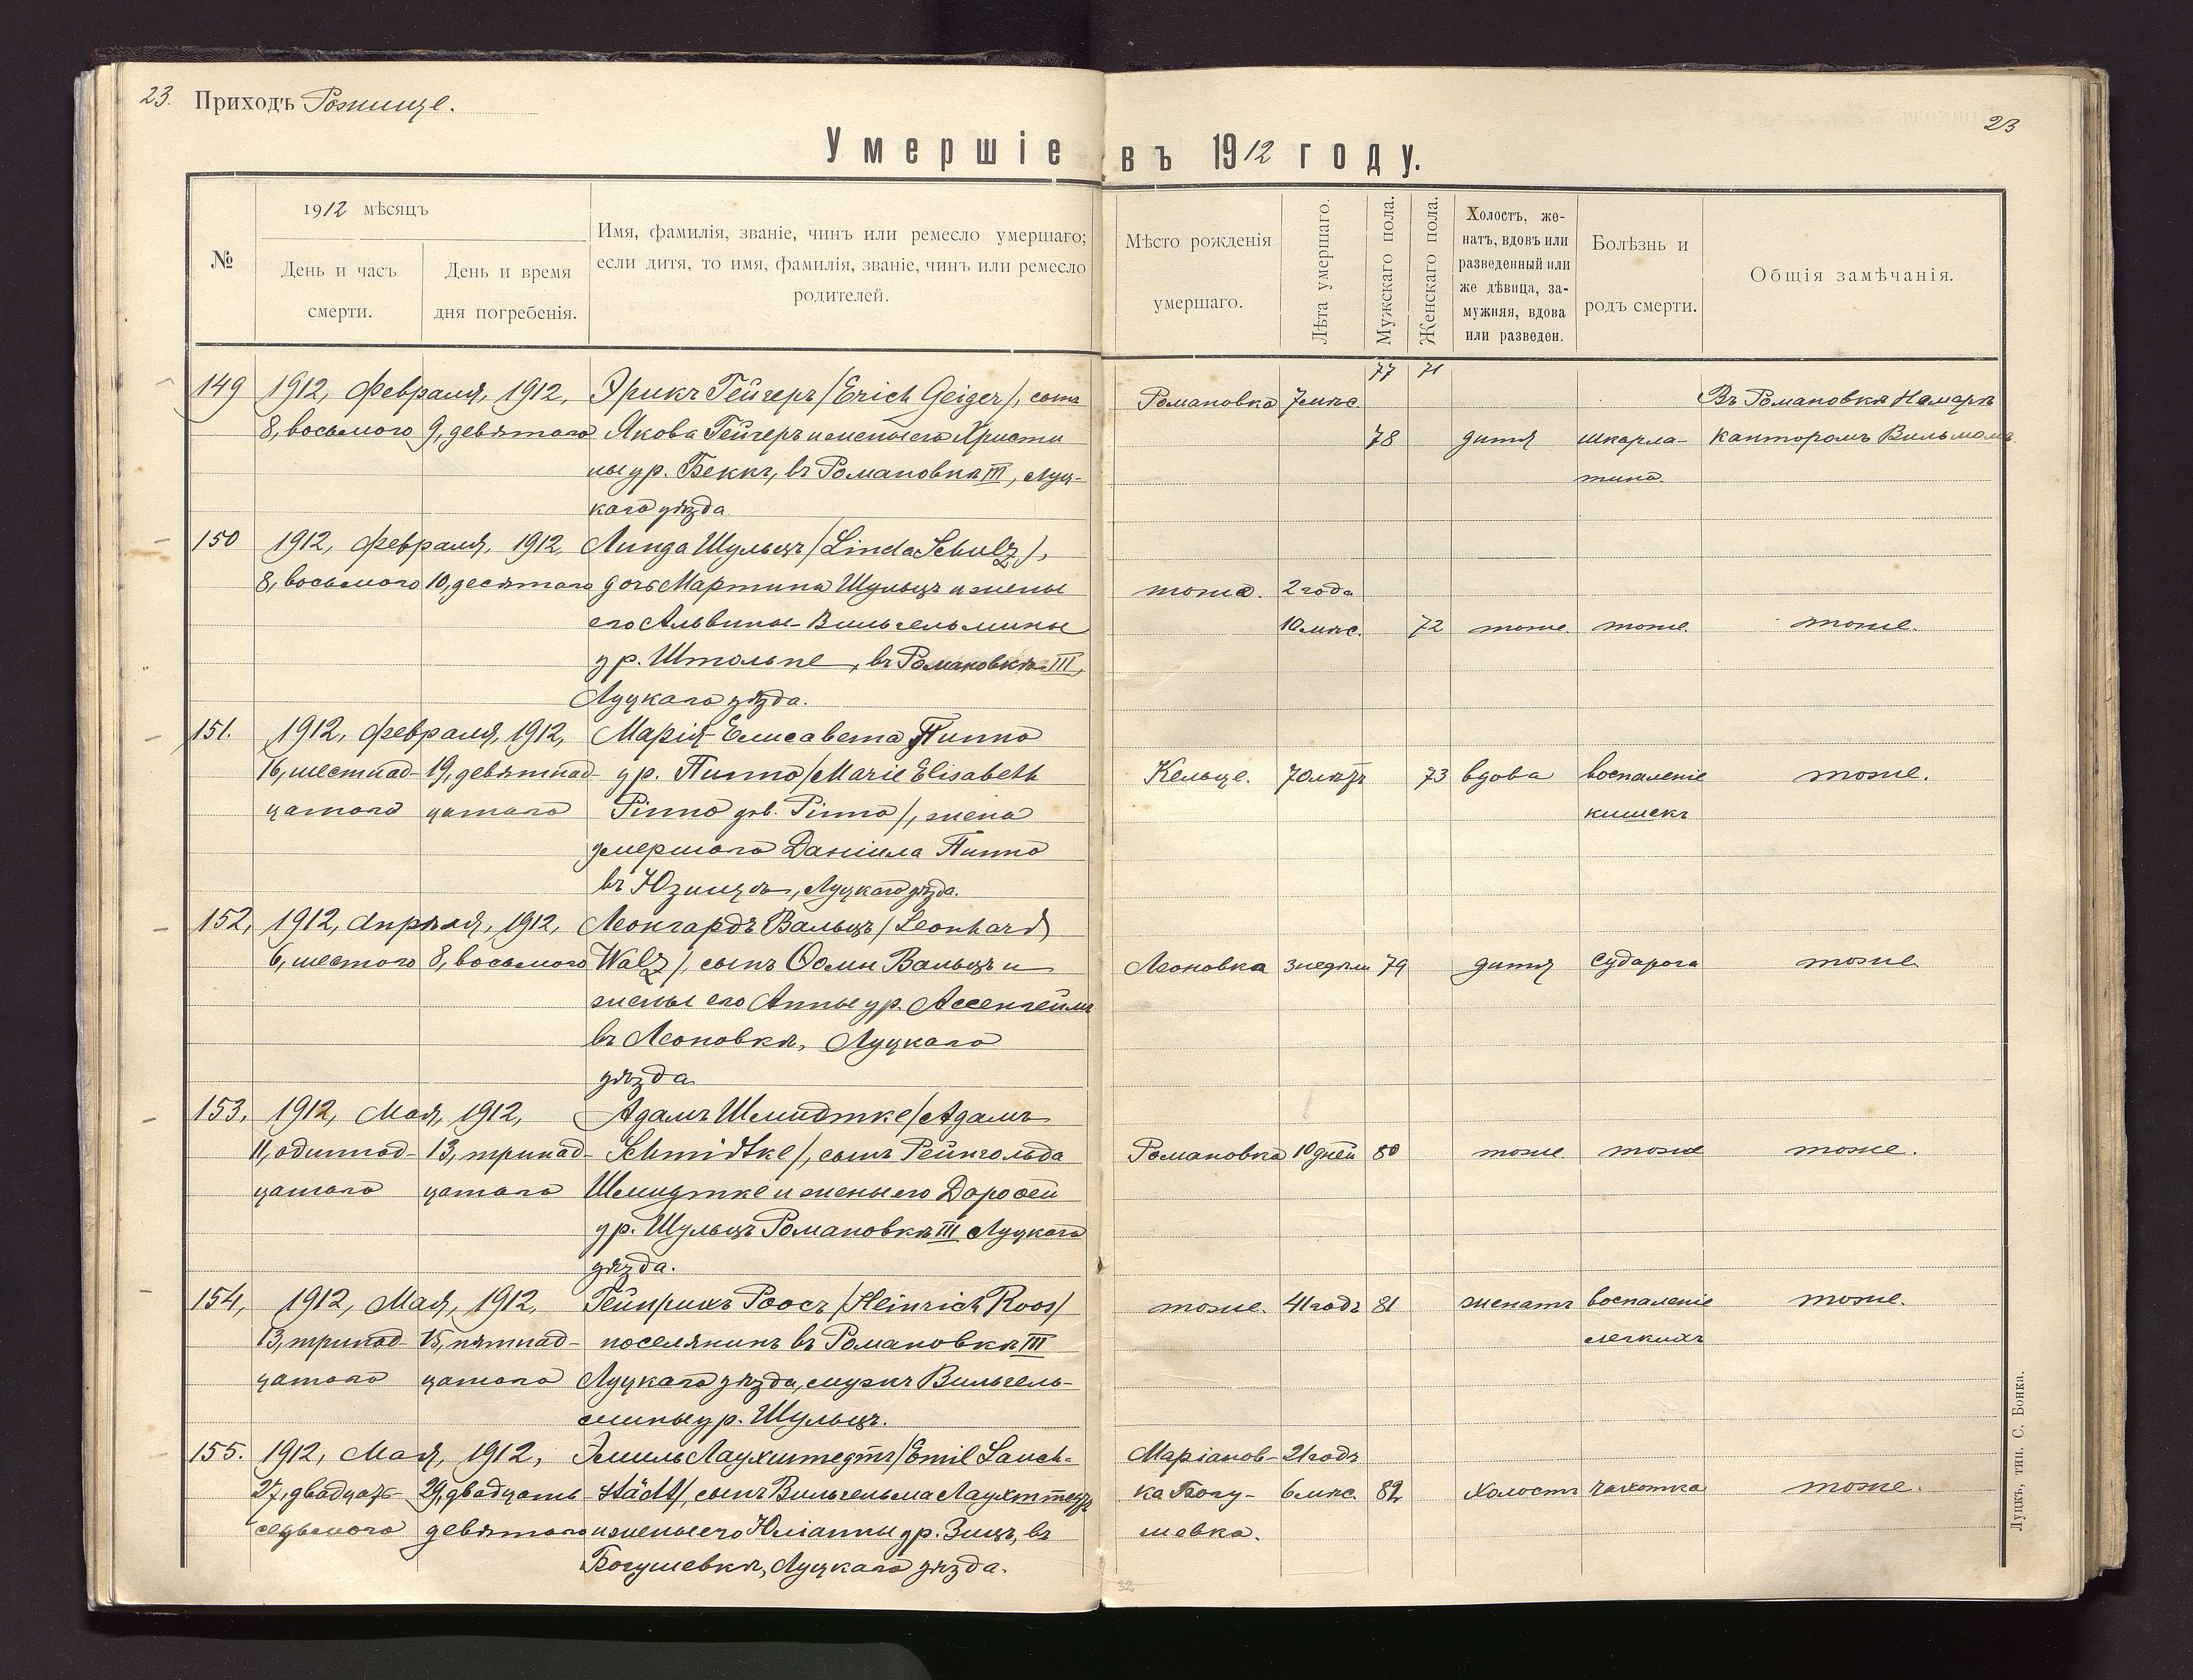 23. Приходъ Рожище.
23
Умершіе въ 1912 году.
№
1912 мѣсяцъ
День и часъ смерти.
День и время дня погребенія.
Имя, фамилія, званіе, чинъ или ремесло умершаго;
если дитя, то имя, фамилія, званіе, чинъ или ремесло
родителей.
Мѣсто рожденія
умершаго.
Лѣта умершаго.
Мужскаго пола.
Женскаго пола.
Холостъ, же-
натъ, вдовъ или
разведенный или
же дѣвица, за-
мужняя, вдова
или разведен.
Болѣзнь и
родъ смерти.
Общія замѣчанія.
77 71
149 1912, Февраля, 1912, Эрикъ Гейгеръ /Erich Geiger/, сынъ Романовка 7 мѣс. Въ Романовкѣ
8, восьмого 9, девятого Якова Гейгеръ и жены его Христи 78 дитя шкарла- канторомъ
ны ур. Беккъ, въ Романовкѣ III, Луц- тина.
каго уѣзда
150 1912, Февраля, 1912, Линда Шульцъ /Linda Schulz/,
8, восьмого 10, десятаго дочь Мартина Шульцъ и жены тоже. 2 года
его Альвины-Вильгельмины 10 мѣс. 72 тоже. тоже. тоже.
ур. Штольпе, въ Романовкѣ III,
Луцкаго уѣзда.
151. 1912, Февраля, 1912, Марія-Елисавета Пинно
16, шестнад- 19, девятнад- ур. Пинно /Marie Elisabeth Кельце. 70 лѣтъ 73 вдова воспаленіе тоже.
цатаго цатаго Pinno geb. Pinno/, жена кишекъ
умершаго Даніила Пинно
въ Юзинцѣ, Луцкаго уѣзда.
152, 1912, Апрѣля, 1912, Леонгардъ Вальцъ /Leonhard
6, шестого 8, восьмого Walz/, сынъ Вальцъ и Леоновка 3 недѣли 79 дитя судорога тоже
жены его Анны ур. Ассенгеймъ
въ Леоновкѣ, Луцкаго
уѣзда.
153. 1912, Мая, 1912, Адамъ Шмидтке /Адамъ
11, одиннад- 13, тринад- Schmidtke/, сынъ Рейнгольда Романовка 10 дней 80 тоже тоже тоже.
цатаго цатаго Шмидтке и жены его Доротеи
ур. Шульцъ Романовкѣ III Луцкаго
уѣзда.
154, 1912, Мая, 1912, Гейнрихъ Роосъ /Heinrich Roos/ тоже. 41 годъ 81 женатъ воспаленіе тоже.
13, тринад- 15, пятнад- поселянинъ въ Романовкѣ III легкихъ
цатаго цатаго Луцкаго уѣзда, мужъ Вильгель-
мины ур. Шульцъ.
155. 1912, Мая, 1912, Эмиль Лаухштедтъ /Emil Lauch- Маріанов- 21 годъ
27, двадцать 29, двадцать städt/, сынъ Вильгельма Лаухштедтъ ка Богу- 6 мѣс. 82 холостъ чахотка тоже.
седьмого девятаго и жены его Юліанны ур. Зицъ, въ шевка.
Богушевкѣ, Луцкаго уѣзда.
Луцкъ, тип. С. Бонка.
32